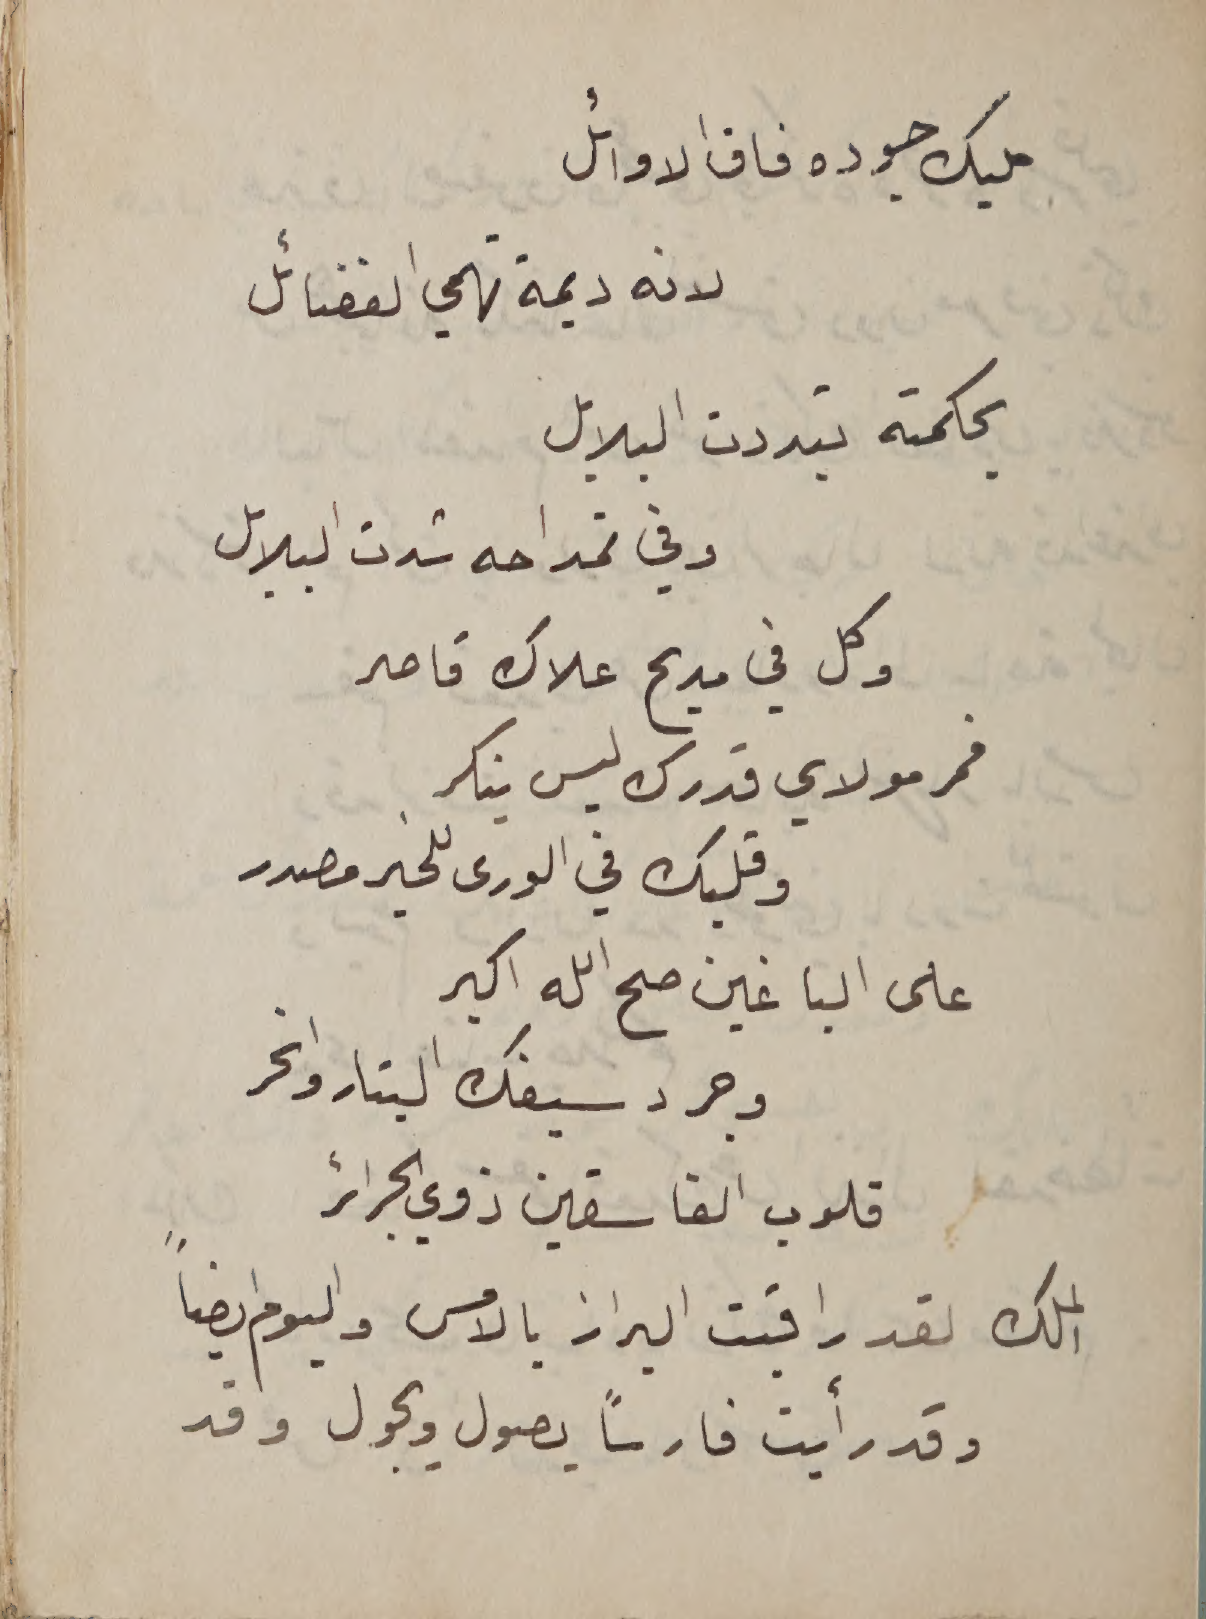 مليك جوده فاق الاوائل
لانه ديمة تهمي الفضائل
بحكمته تبددت البلابل
وفي تمداحه شدت البلابل
وكل في مديح علاك قاصر
فمر مولاي قدرك ليس ينكر
وقلبك في الورى للخير مصدر
على الباغين صح الله اكبر
وجرد سيفك البتار وانحر
قلوب الفاسقين ذوي الجرائر
الملك لقد راقبت البراز بالامس واليوم ايضاً
وقد رأيت فارساً يصول ويجول وقد